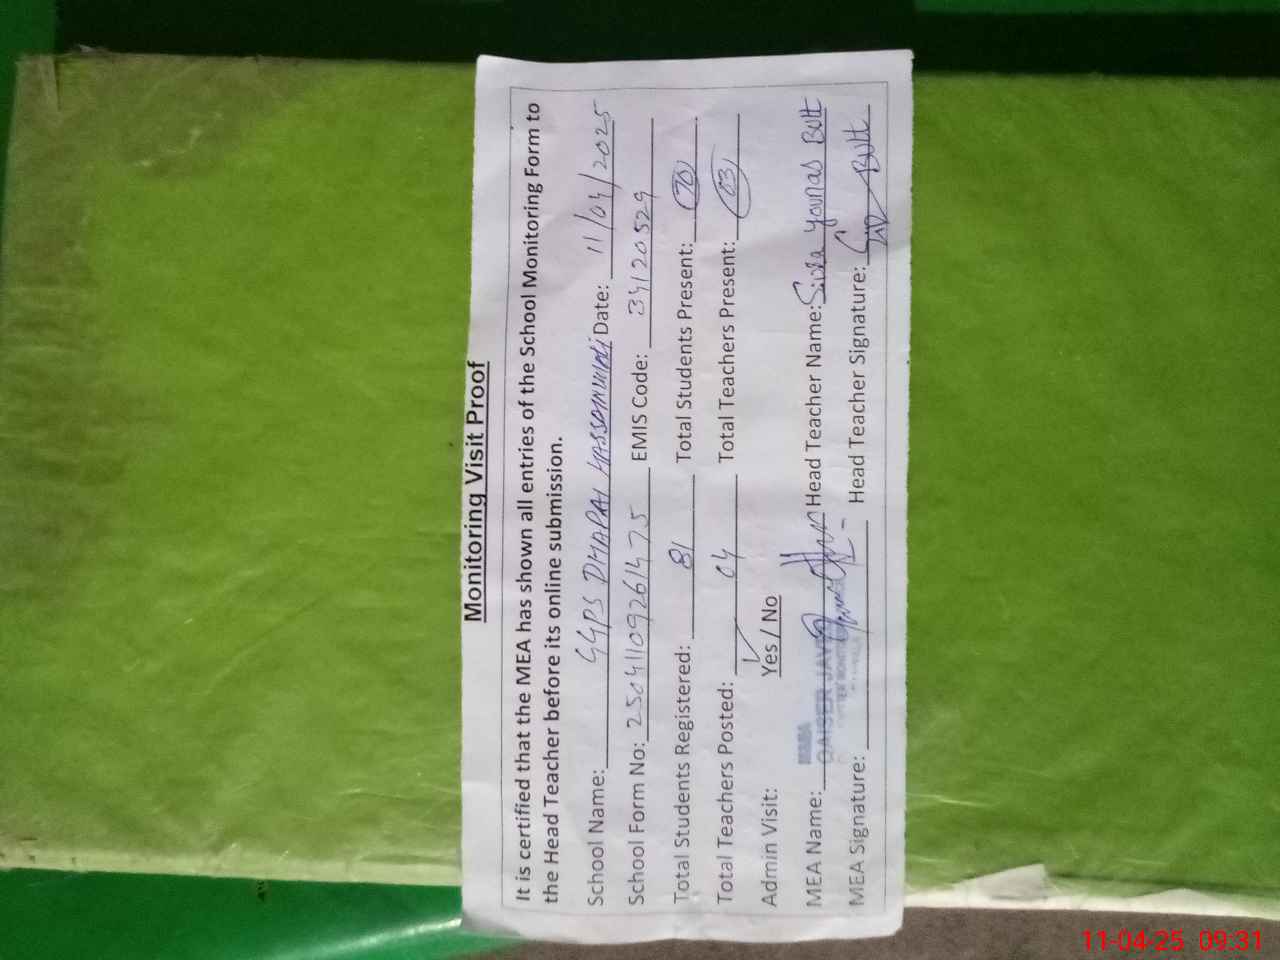 Monitoring Visit Proof
It is certified that the MEA has shown all entries of the School Monitoring Form to
the Head Teacher before its online submission.
School Name: GGPS DHAPAI Date: 11/04/2025
School Form No: 25041109261475 EMIS Code: 34120529
Total Students Registered: 81 Total Students Present: 70
Total Teachers Posted: 04 Total Teachers Present: 03
Admin Visit: Yes / No
MEA Name: QAISER Head Teacher Name: Sidra Younas Butt
MEA Signature: Head Teacher Signature: Butt
11-04-25 09:31